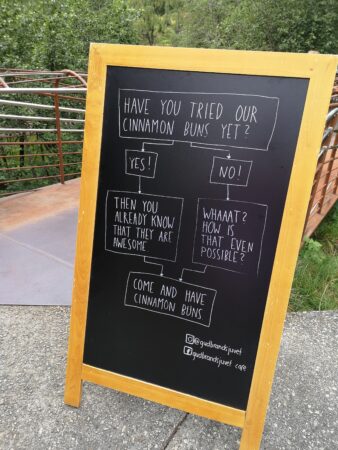 HAVE YOU TRIED OUR
CINNAMON BUNS YET?
YES!
NO!
THEN YOU
ALREADY KNOW
THAT THEY ARE
AWESOME
WHAAAT?
HOW IS
THAT EVEN
POSSIBLE?
COME AND HAVE
CINNAMON BUNS
@gudbrandsjuvet
gudbrandsjuvet cafe